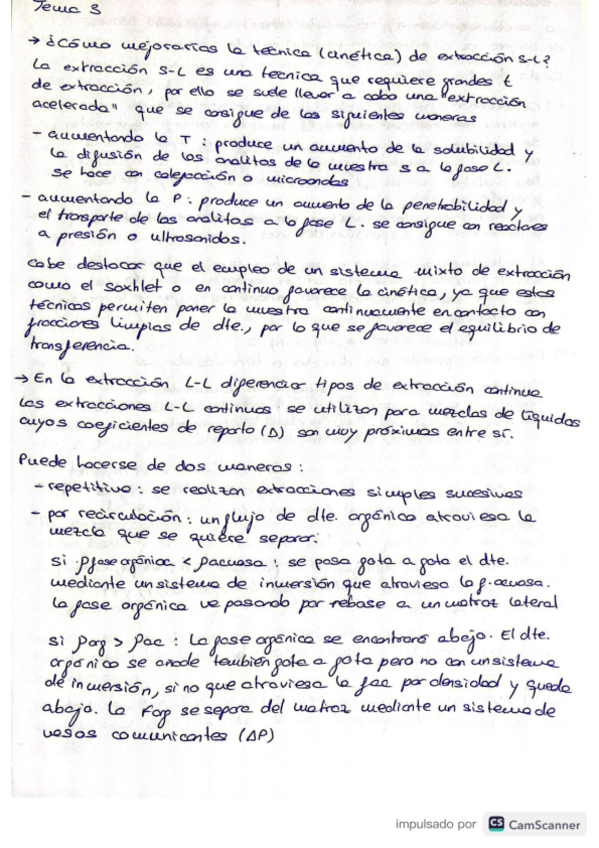 Tema 3
→ ¿Cómo mejorarías la técnica (cinética) de extracción S-L?
La extracción S-L es una tecnica que requiere grandes t
de extracción, por ello se suele llevar a cabo una "extracción
acelerada" que se consigue de las siguientes maneras
- aumentando la T: produce un aumento de la solubilidad y
la difusión de los analitos de la muestra S a la fase L.
se hace con calefacción o microondas
- aumentando la P: produce un aumento de la penetrabilidad y
el transporte de los analitos a la fase L. se consigue con reactores
a presión o ultrasonidos.
cabe destacar que el empleo de un sistema mixto de extracción
como el soxhlet o en continuo favorece la cinética, ya que estas
técnicas permiten poner la muestra continuamente en contacto con
fracciones limpias de dte., por lo que se favorece el equilibrio de
transferencia.
→ En la extracción L-L diferenciar tipos de extracción continua
las extracciones L-L continuas se utilizan para mezclas de líquidos
cuyos coeficientes de reparto (Δ) son muy próximos entre sí.
Puede hacerse de dos maneras:
- repetitiva: se realizan extracciones simples sucesivas
- por recirculación: un flujo de dte. orgánico atraviesa la
mezcla que se quiere separar.
si ρfase orgánica < ρacuosa: se pasa gota a gota el dte.
mediante un sistema de inmersión que atraviesa la f. acuosa.
la fase orgánica va pasando por rebase a un matraz lateral
si ρorg > ρac: La fase orgánica se encontrará abajo. El dte.
orgánico se añade también gota a gota pero no con un sistema
de inmersión, si no que atraviesa la fac por densidad y queda
abajo. la Forg se separa del matraz mediante un sistema de
vasos comunicantes (ΔP)
impulsado por CS CamScanner